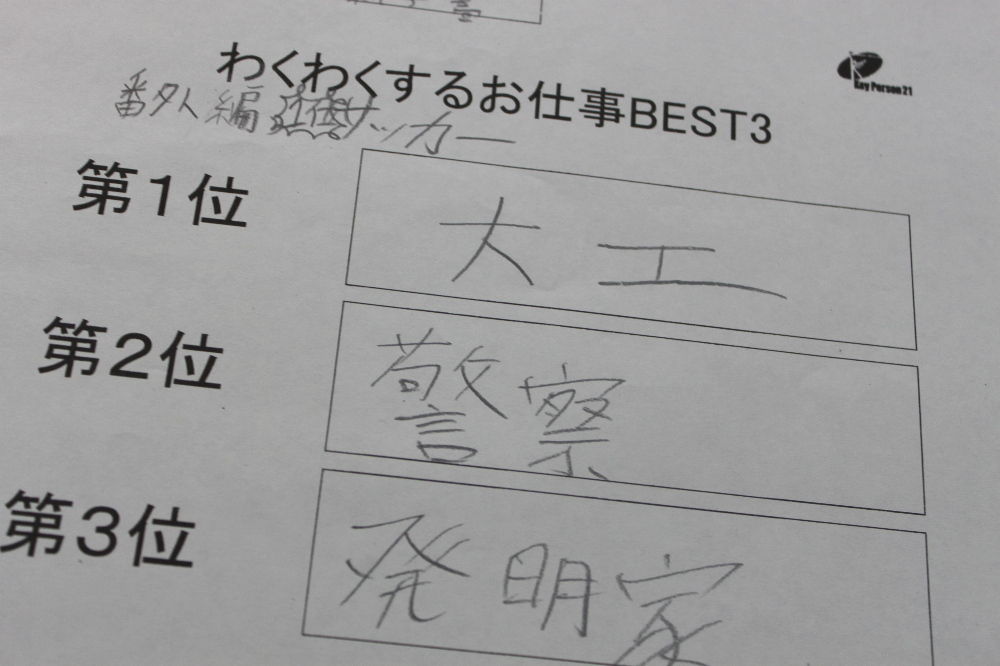 わくわくするお仕事BEST3
Key Person21
番外編 サッカー
第1位
大工
第2位
警察
第3位
発明家